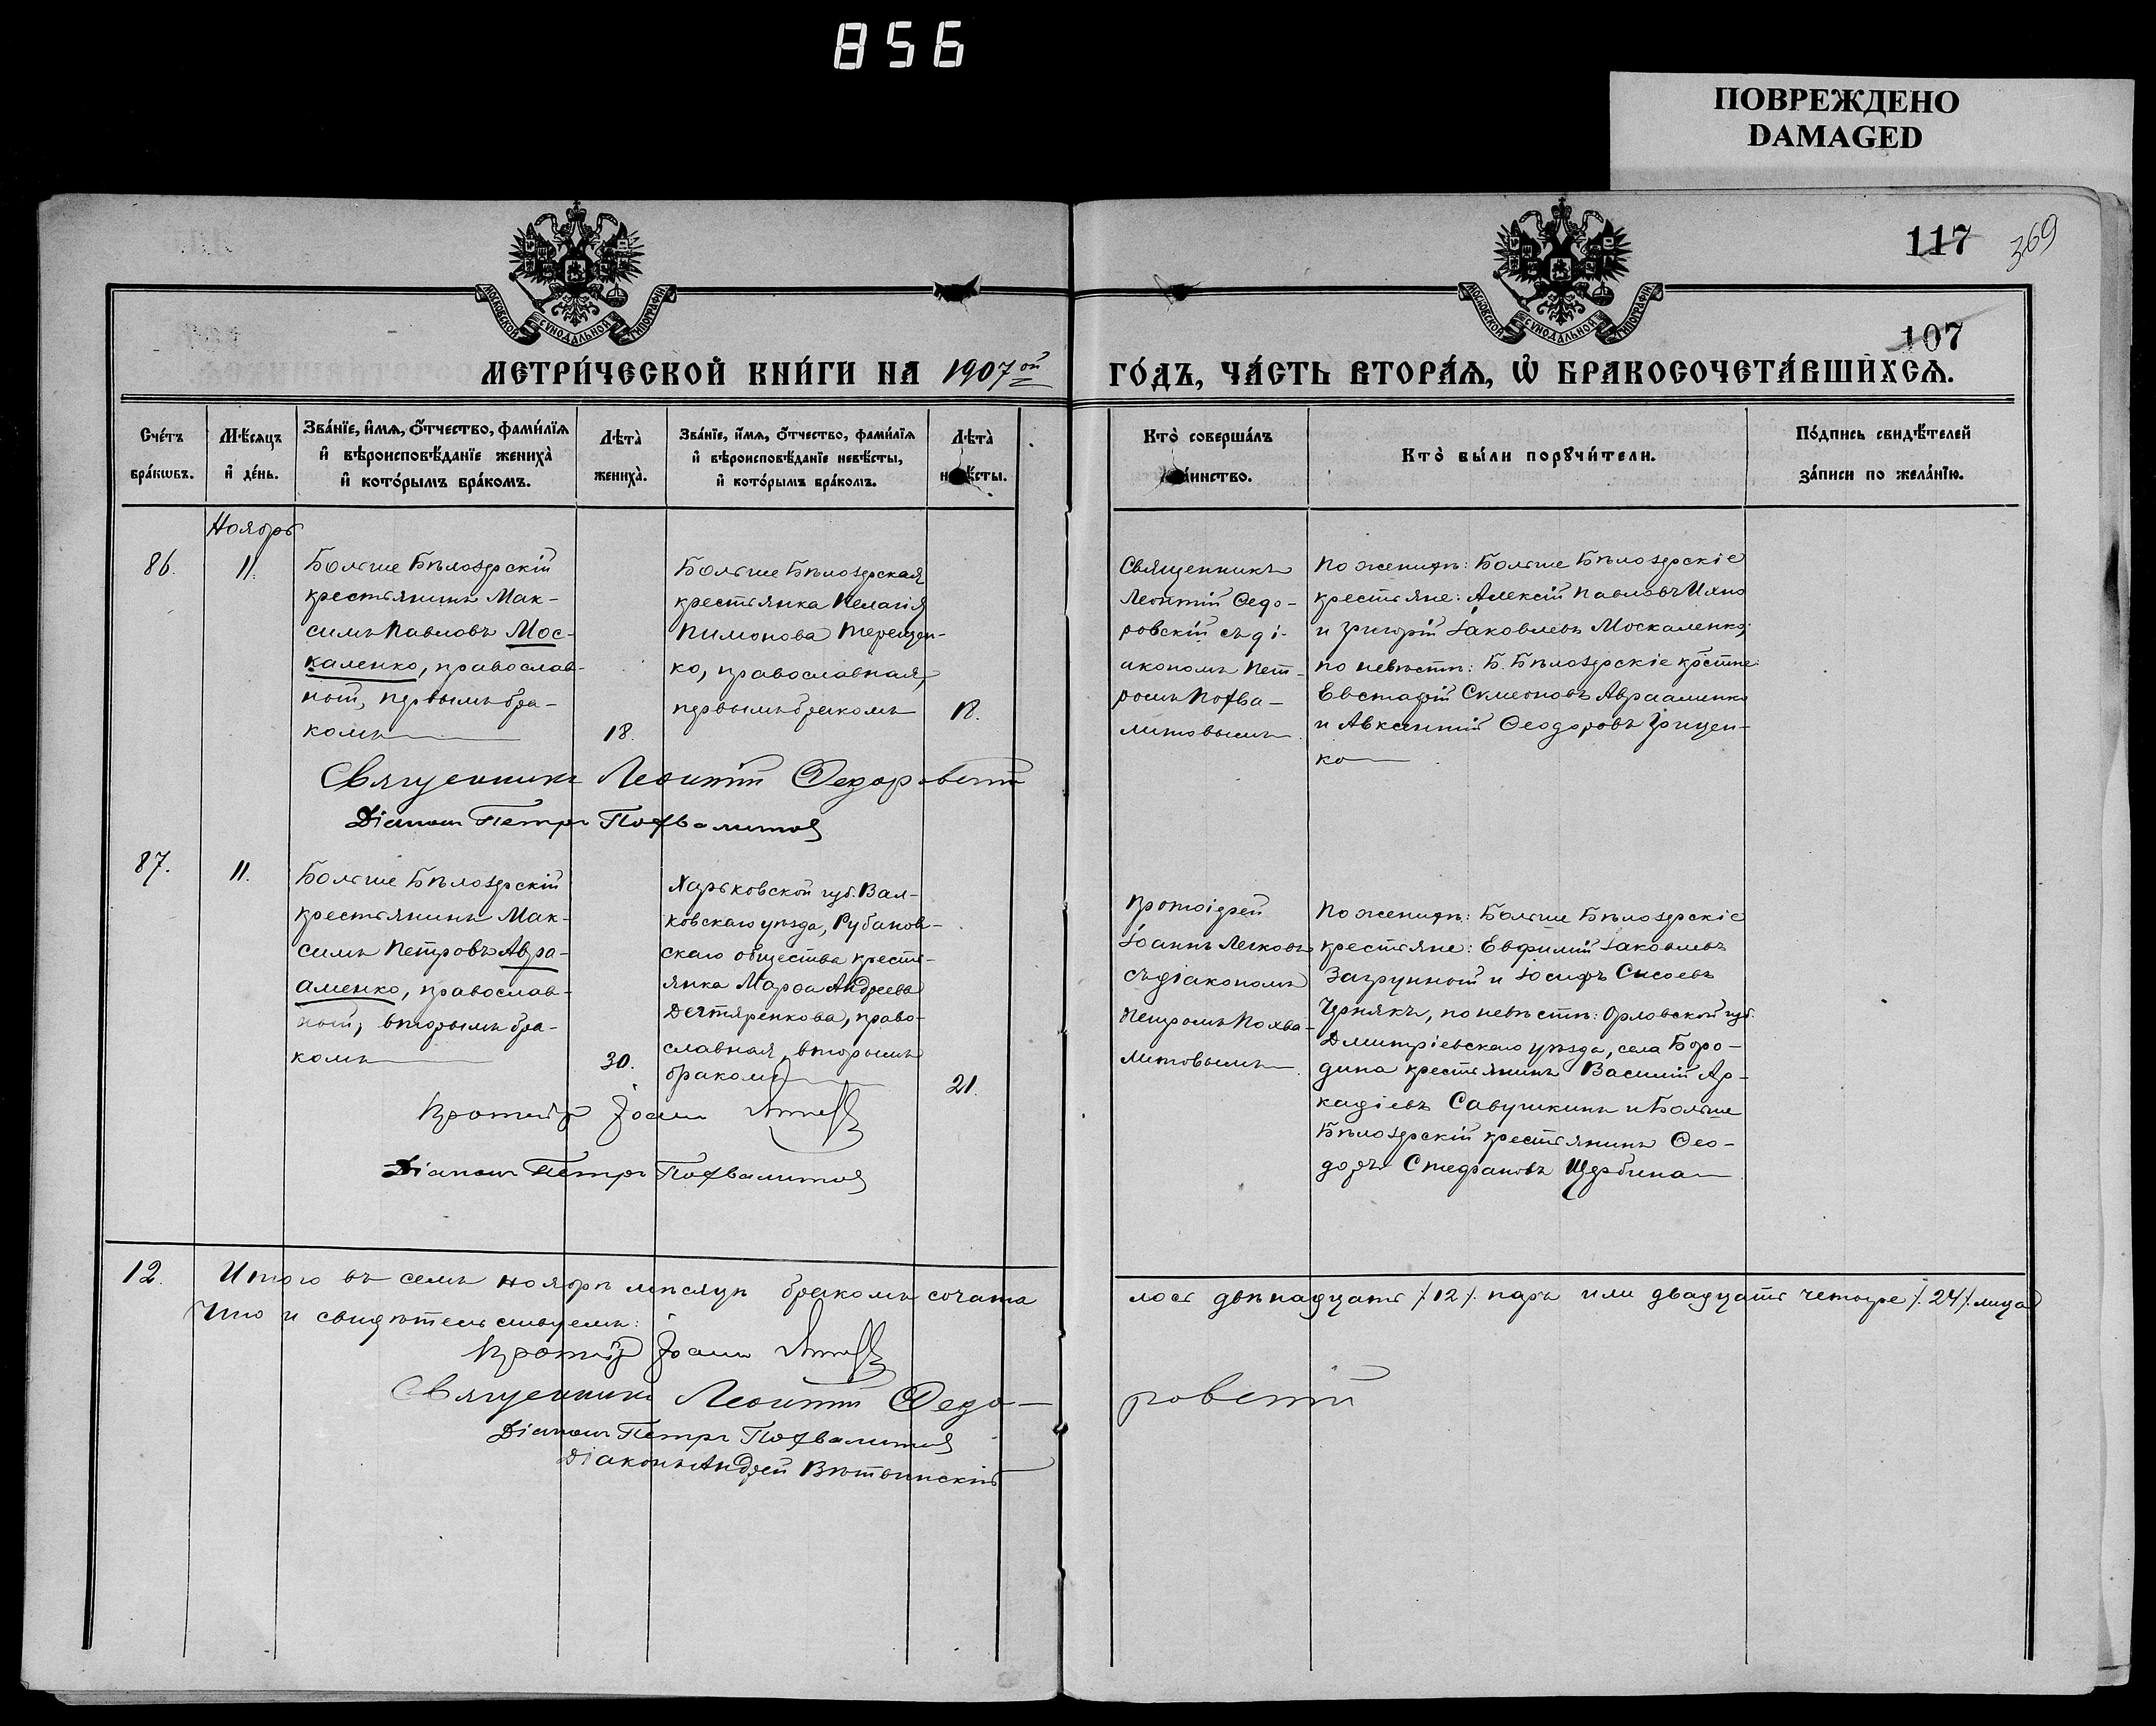 856
ПОВРЕЖДЕНО
DAMAGED
117
369
107
МОСКОВСКОЙ СѴНОДАЛЬНОЙ ТИПОГРАФІИ
МОСКОВСКОЙ СѴНОДАЛЬНОЙ ТИПОГРАФІИ
МЕТРИ́ЧЕСКОЙ КНИ́ГИ НА 1907ой ГО́ДЪ, ЧА́СТЬ ВТОРА́Ѧ, Ѡ҆ БРАКОСОЧЕТА́ВШИХСѦ.
Сче́тъ
бра́кѡвъ.
Мѣ́сяцъ
и҆ де́нь.
Зва́нїе, и҆́мѧ, о҆́тчество, фами́лїѧ
и҆ вѣроисповѣ́данїе жениха̀
и҆ кото́рымъ бра́комъ.
Лѣта̀
жениха̀.
Зва́нїе, и҆́мѧ, о҆́тчество, фами́лїѧ
и҆ вѣроисповѣ́данїе невѣ́сты,
и҆ кото́рымъ бра́комъ.
Лѣта̀
невѣ́сты.
Кто̀ соверша́лъ
таинство.
Кто̀ бы́ли порꙋчи́тели.
По́дпись свидѣ́телей
за́писи по жела́нїю.
Ноябрь
86.
11.
Больше Бѣлозерскій
крестьянинъ Мак-
симъ Павловъ Мос-
каленко, православ-
ный, первымъ бра-
комъ
18.
Больше Бѣлозерская
крестьянка Пелагія
Пимонова Терещен-
ко, православная,
первымъ бракомъ
18.
Священникъ
Леонтій Ѳедо-
ровскій съ ді-
акономъ Пет-
ромъ Похва-
литовымъ.
По женихѣ: Больше Бѣлозерскіе
крестьяне: Алексій Павловъ Ихно
и Григорій Іаковлевъ Москаленко;
по невѣстѣ: Б. Бѣлозерскіе крестне:
Евстафій Симеоновъ Авраменко
и Авксентій Ѳеодоровъ Грицен-
ко
Священникъ Леонтій Ѳедоровскій
Діаконъ Петръ Похвалитовъ
87.
11.
Больше Бѣлозерскій
крестьянинъ Мак-
симъ Петровъ Авра-
аменко, православ-
ный, вторымъ бра-
комъ
30.
Харьковской губ. Вал-
ковскаго уѣзда, Рубанов-
скаго общества кресть-
янка Марѳа Андреева
Дегтяренкова, право-
славная, вторымъ
бракомъ
21.
Протоіерей
Іоаннъ Легковъ
съ діакономъ
Петромъ Похва-
литовымъ.
По женихѣ: Больше Бѣлозерскіе
крестьяне: Евфимій Іаковлевъ
Загрунный и Іосифъ Сисоевъ
Чернякъ, по невѣстѣ: Орловской губ.
Дмитріевскаго уѣзда, села Боро-
дина крестьянинъ Василій Ар-
кадіевъ Савушкинъ и Больше
Бѣлозерскій крестьянинъ Ѳео-
доръ Стефановъ Щербина
Протоіерей Іоаннъ
Діаконъ Петръ Похвалитовъ
12.
Итого въ семъ ноябрѣ мѣсяцѣ бракомъ сочата лось двѣнадцать /12/. паръ или двадцать четыре /.24/. лица
Что и свидѣтельствуемъ:
Протоіерей Іоаннъ
Священникъ Леонтій Ѳедо- ровскій
Діаконъ Петръ Похвалитовъ
Діаконъ Андрей